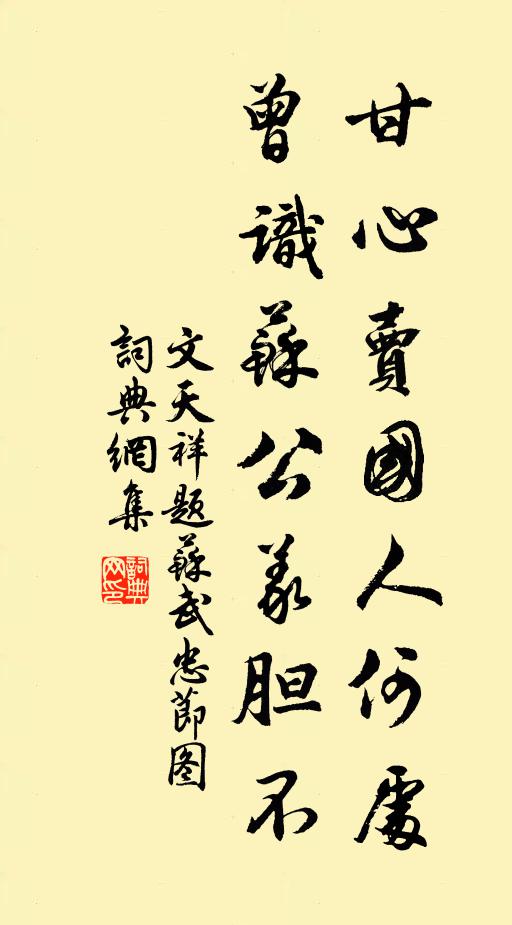 甘心賣國人何處
曾識蘇公義胆不
文天祥題蘇武忠節图
詞典網集
詞典
网印